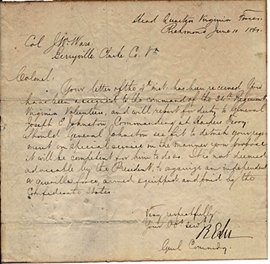 Head Quarters Virginia Forces
Richmond June 11 1861.
Col J. W. Ware
Berryville Clarke Co. Va
Colonel:
Your letter of the 9th inst. has been received. You
have been assigned to the command of the Regiment
Virginia Volunteers, and will report for duty to General
Joseph E Johnston, Commanding at Harpers Ferry.
Should General Johnston see fit to detach your regi-
ment on special service in the manner you propose
it will be competent for him to do so. It is not deemed
advisable by the President, to organize an independent
or guerilla force, armed equipped and paid by the
Confederate States
Very respectfully
Your Obt servt
R E Lee
Genl Commdg.